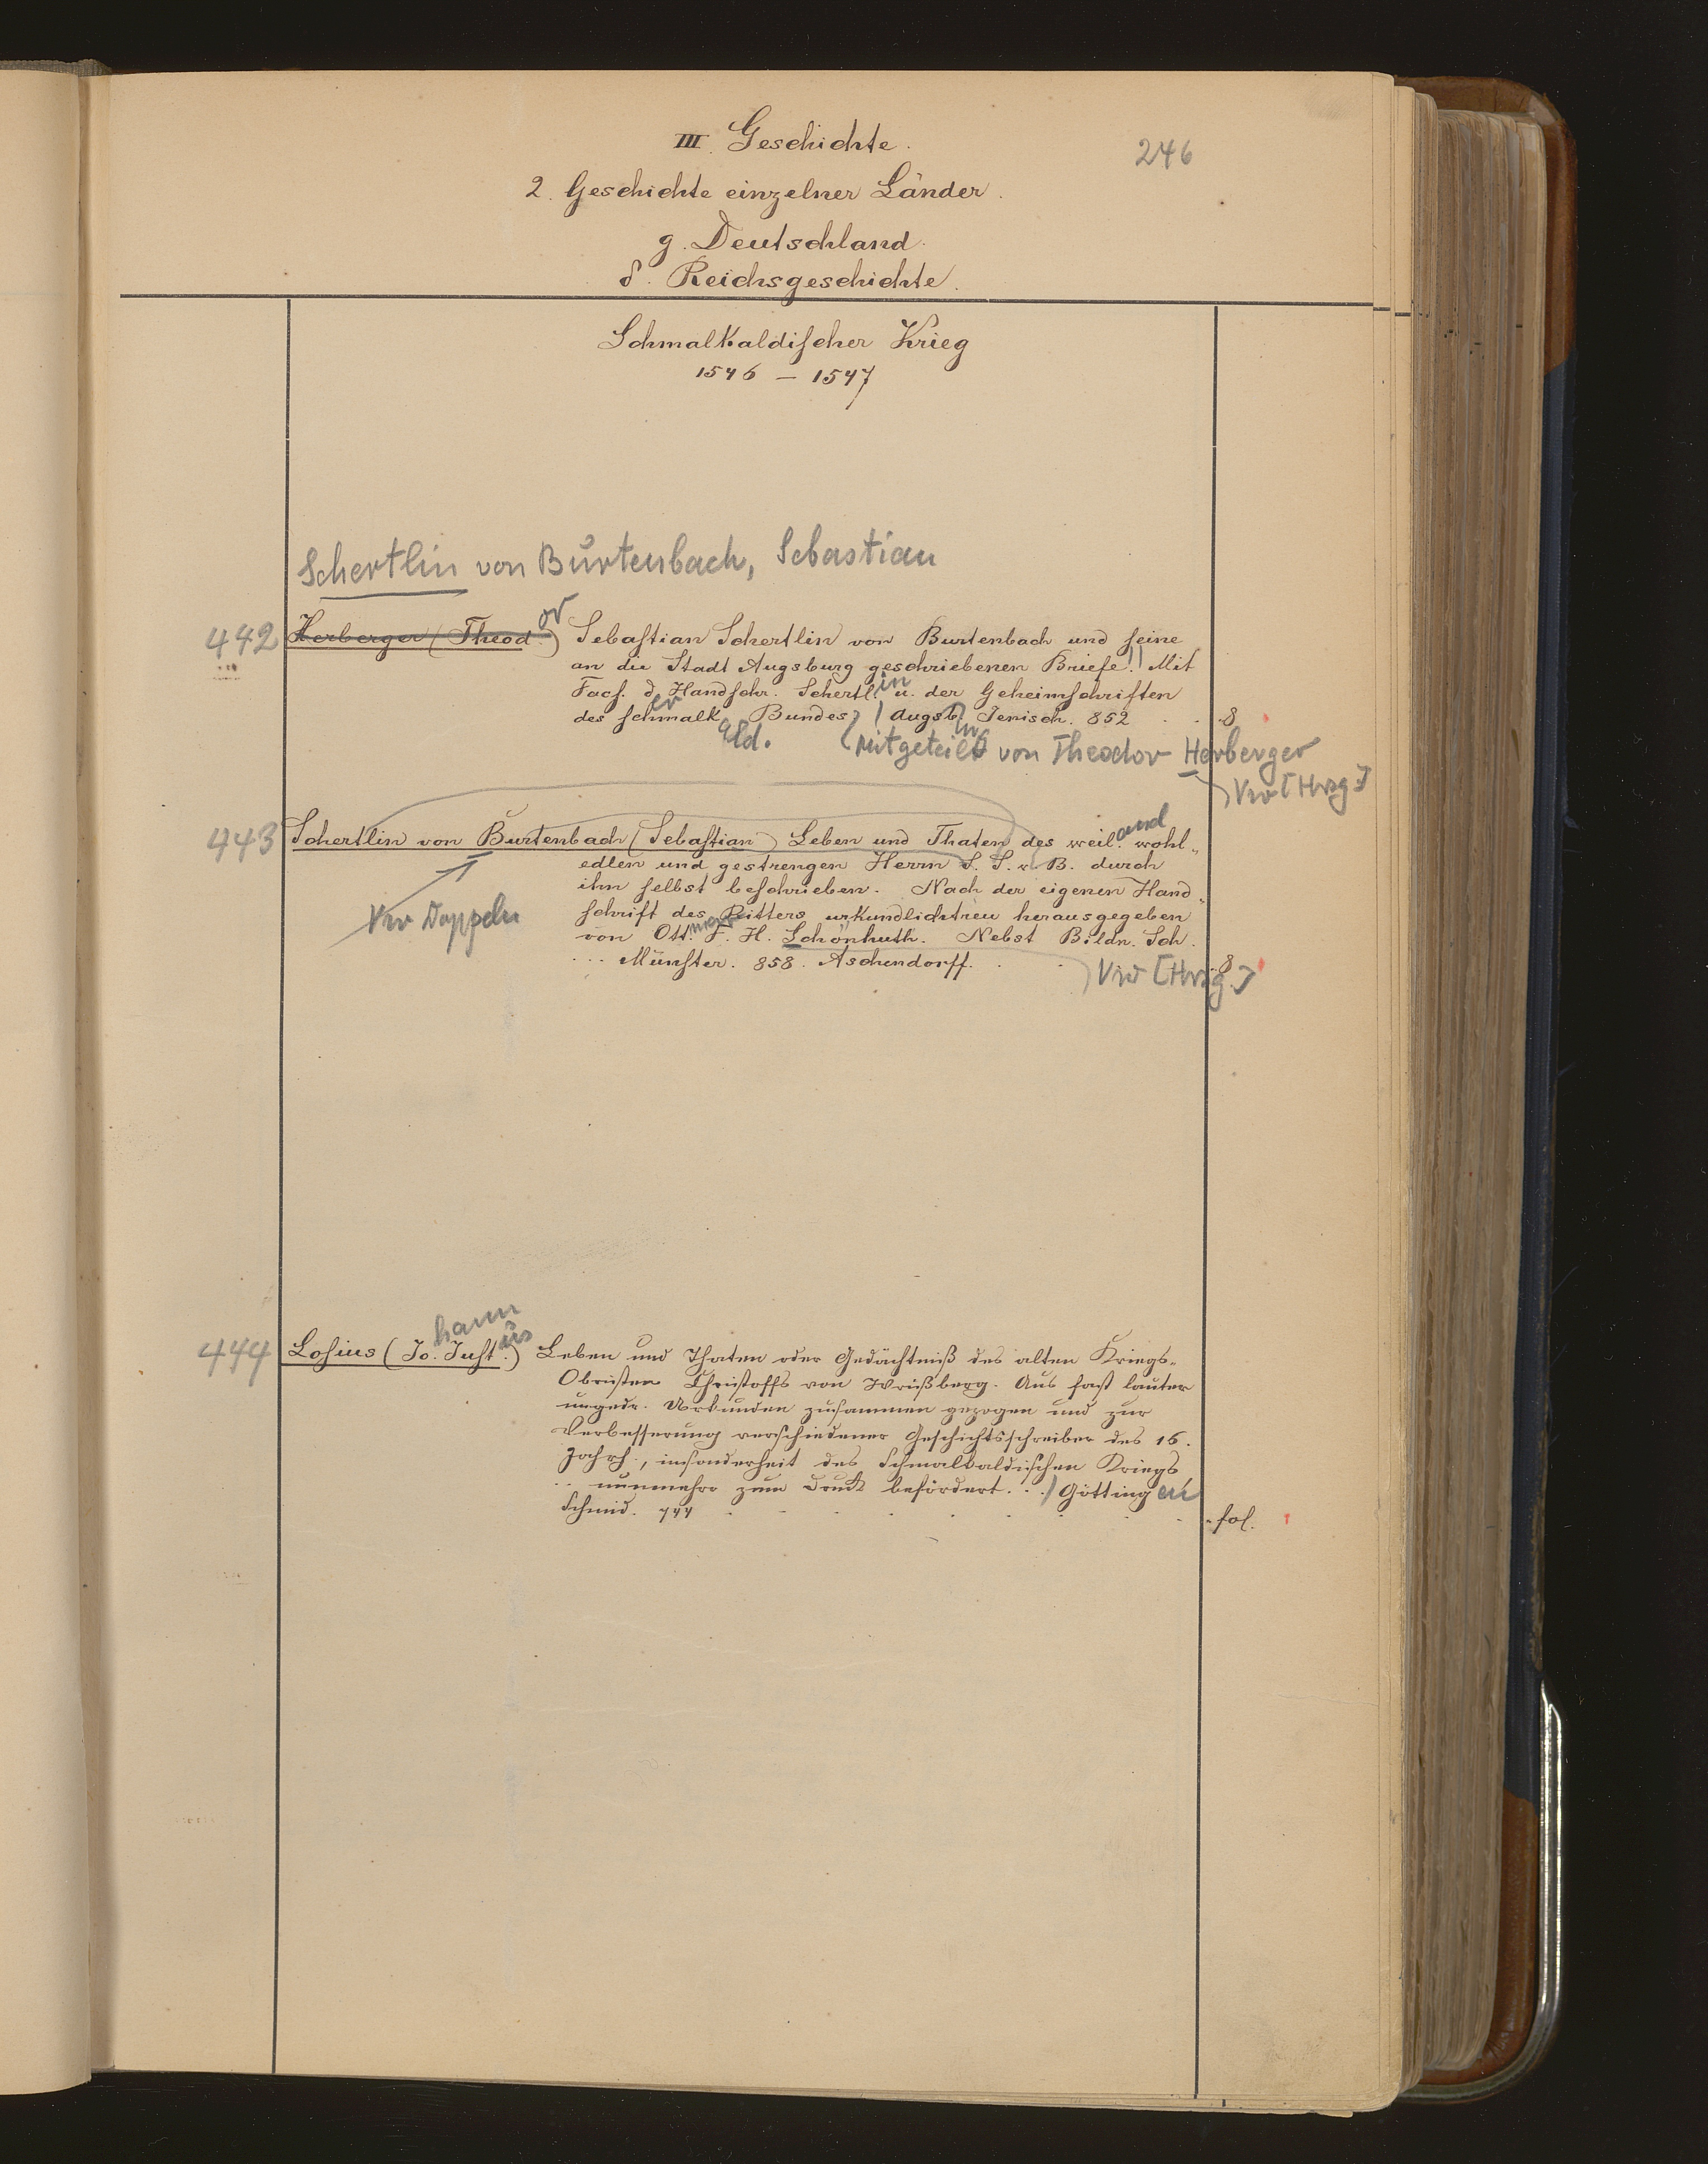 III. Geschichte.
246
2. Geschichte einzelner Länder.
g. Deutschland.
δ. Reichsgeschichte.
Schmalkaldischer Krieg
1546 – 1547
Schertlin von Burtenbach, Sebastian
442 Herberger (Theodor) Sebastian Schertlin von Burtenbach und seine
an die Stadt Augsburg geschriebenen Briefe. Mit
Facs. der Handschr. Schertlin u. der Geheimschriften
des schmalkald. Bundes. Augsb. Jenisch. 852 . . 8
(Mitgeteilt von Theodor Herberger
Vw [Hrsg]
443 Schertlin von Burtenbach (Sebastian) Leben und Thaten des weiland wohl-
edlen und gestrengen Herrn S. S. v. B. durch
ihn selbst beschrieben. Nach der eigenen Hand-
schrift des Ritters urkundlichtreu herausgegeben
Vw Doppeln
von Ottmar F. H. Schönhuth. Nebst Bildn. Sch.
... Münster. 858. Aschendorff. . . 8
Vw [Hrsg.]
444 Losius (Johann Justus) Leben und Thaten oder Gedächtniß des alten Kriegs-
Obristen Christoffs von Wrißberg. Aus fast lauter
ungedr. Urkunden zusammen gezogen und zur
Verbesserung verschiedener Geschichtsschreiber des 16.
Jahrh., insonderheit des Schmalkaldischen Kriegs
.. nunmehro zum Druck befördert. .. Göttingen
Schmid. 744 . . . . . . . . fol.